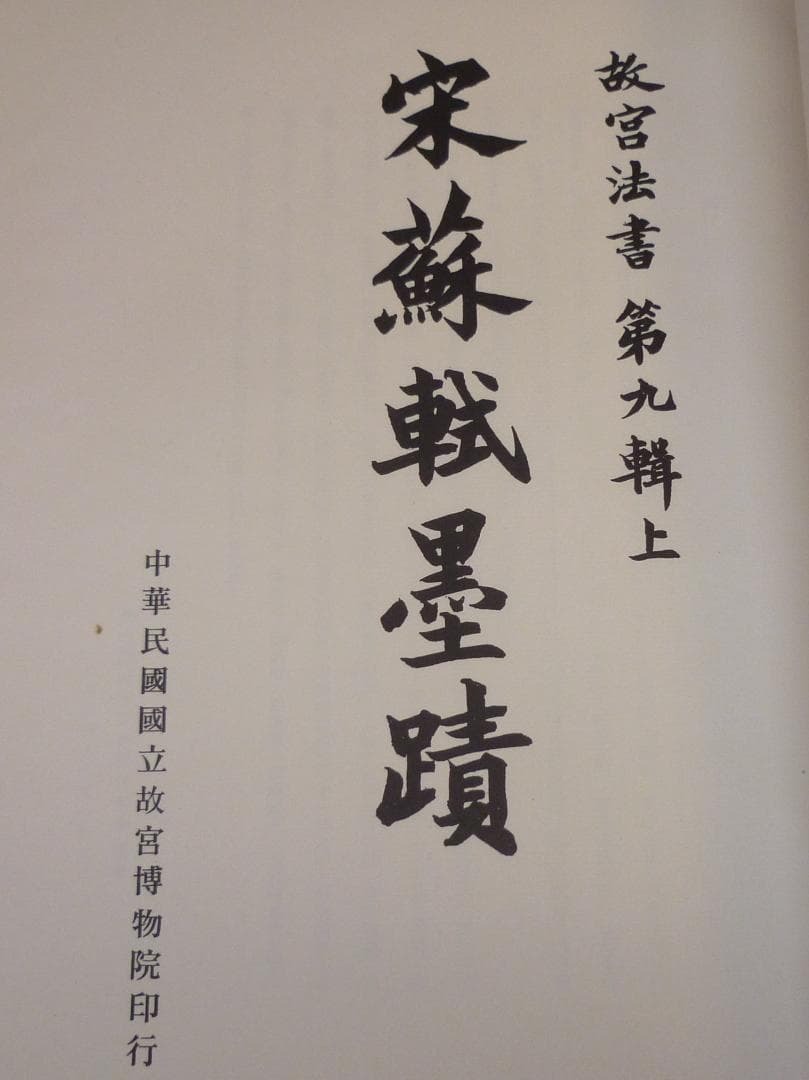 故宮法書 第九輯上
宋蘇軾墨蹟
中華民國國立故宮博物院印行